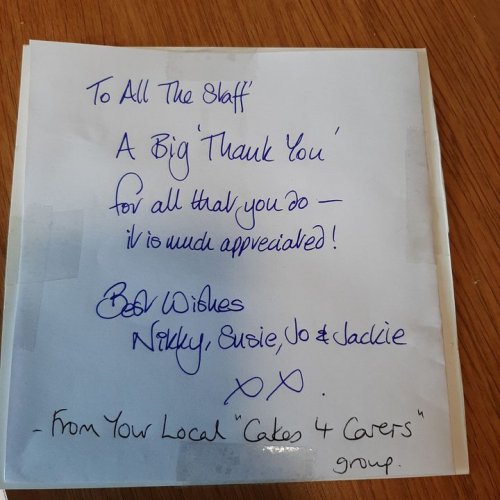 To All The Staff'
A Big 'Thank You'
for all that you do —
it is much appreciated!
Best Wishes
Nikky, Susie, Jo & Jackie
XX.
- From Your Local "Cakes 4 Carers"
group.